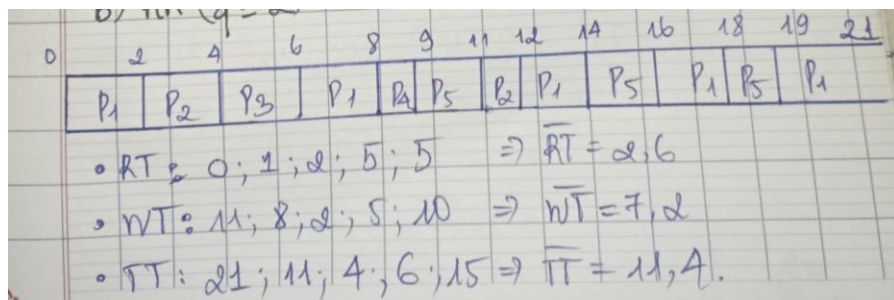 b) RR (q=2
0 2 4 6 8 9 11 12 14 16 18 19 21
P1 P2 P3 P1 P4 P5 P2 P1 P5 P1 P5 P1
• RT : 0 ; 1 ; 2 ; 5 ; 5 => R̅T̅ = 2,6
• WT : 11 ; 8 ; 2 ; 5 ; 10 => W̅T̅ = 7,2
• TT : 21 ; 11 ; 4 ; 6 ; 15 => T̅T̅ = 11,4.